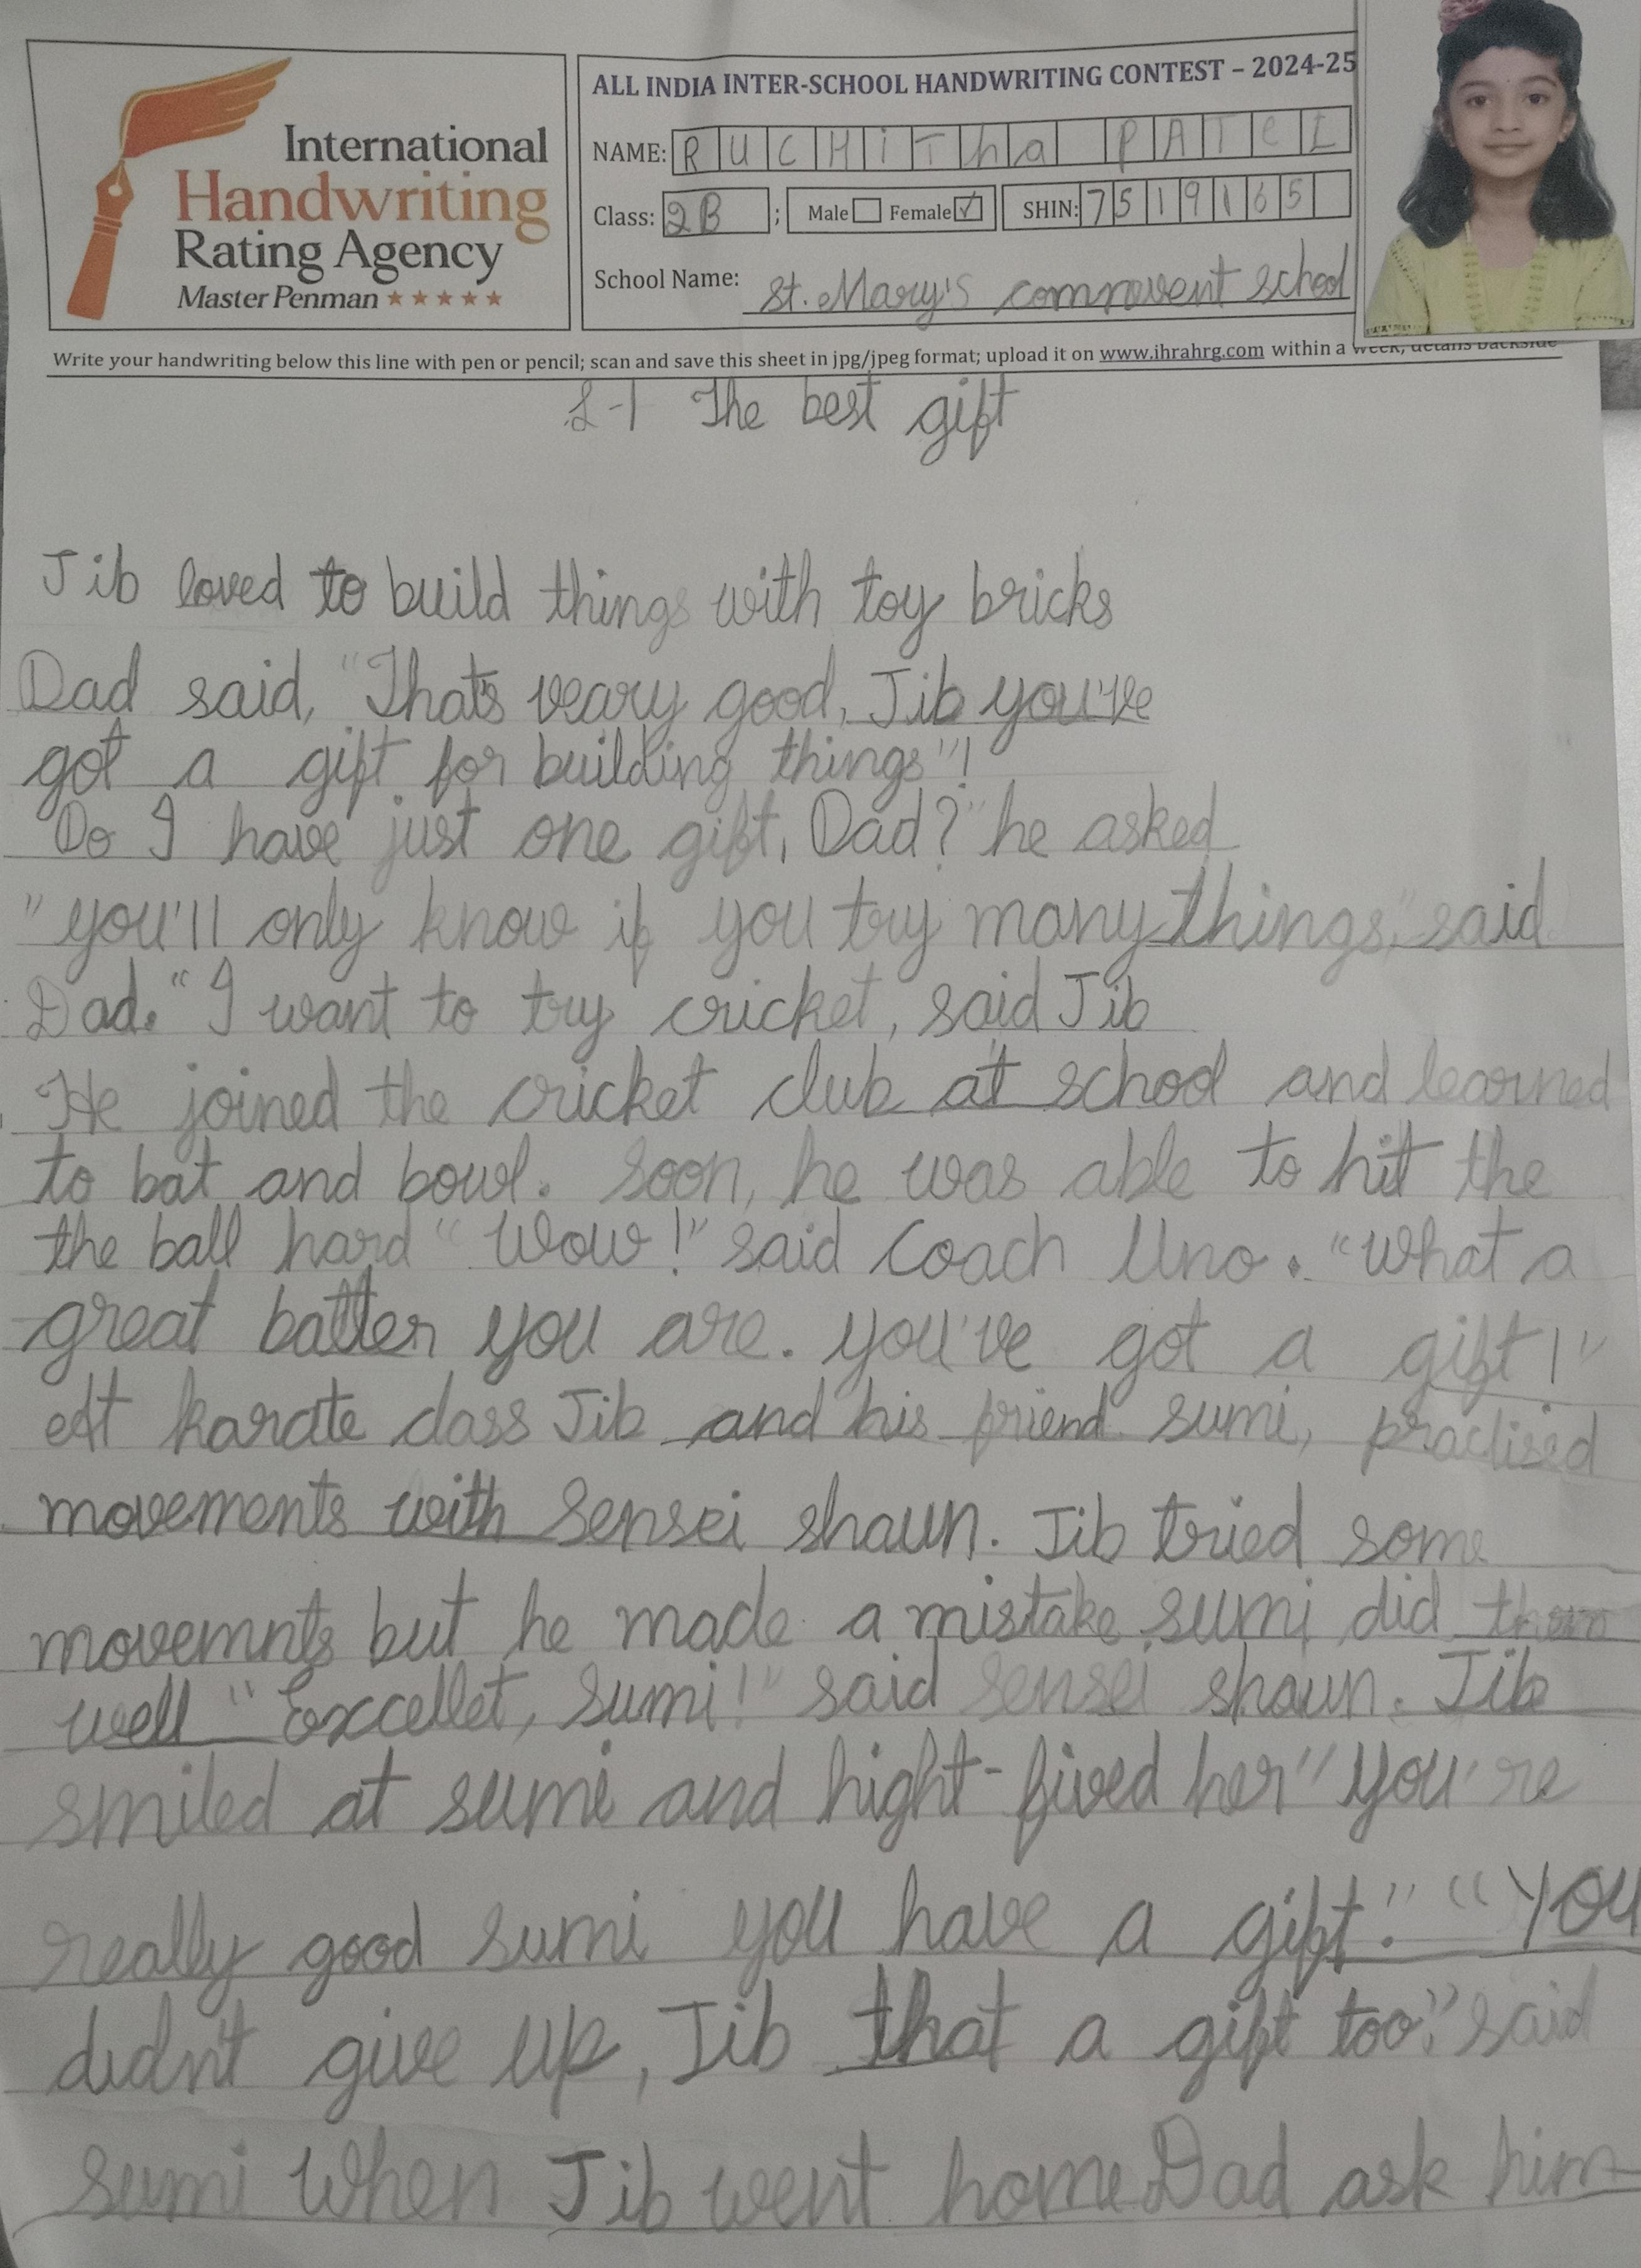 International
Handwriting
Rating Agency
Master Penman
ALL INDIA INTER-SCHOOL HANDWRITING CONTEST – 2024-25
NAME: RUCHiTha PATeL
Class: 2B ; Male Female ✓ SHIN: 7519165
School Name: St. Mary's comnvent school
Write your handwriting below this line with pen or pencil; scan and save this sheet in jpg/jpeg format; upload it on www.ihrahrg.com within a week, details backside
L-1 The best gift
Jib loved to build things with toy bricks
Dad said, "That's veary good, Jib you've
got a gift for building things"!
"Do I have just one gift, Dad?" he asked
"you'll only know if you try many things," said
Dad. "I want to try cricket, said Jib
He joined the cricket club at school and learned
to bat and bowl. Soon, he was able to hit the
the ball hard "Wow!" said Coach Uno. "What a
great batter you are. you've got a gift!"
At karate class Jib and his friend sumi, practised
movements with Sensei shaun. Jib tried some
movemnts but he made a mistake sumi did them
well "Excellet, sumi!" said sensei shaun. Jib
smiled at sumi and hight-fived her "you're
really good sumi you have a gift." "You
didn't give up, Jib that a gift too." said
sumi When Jib went home Dad ask him